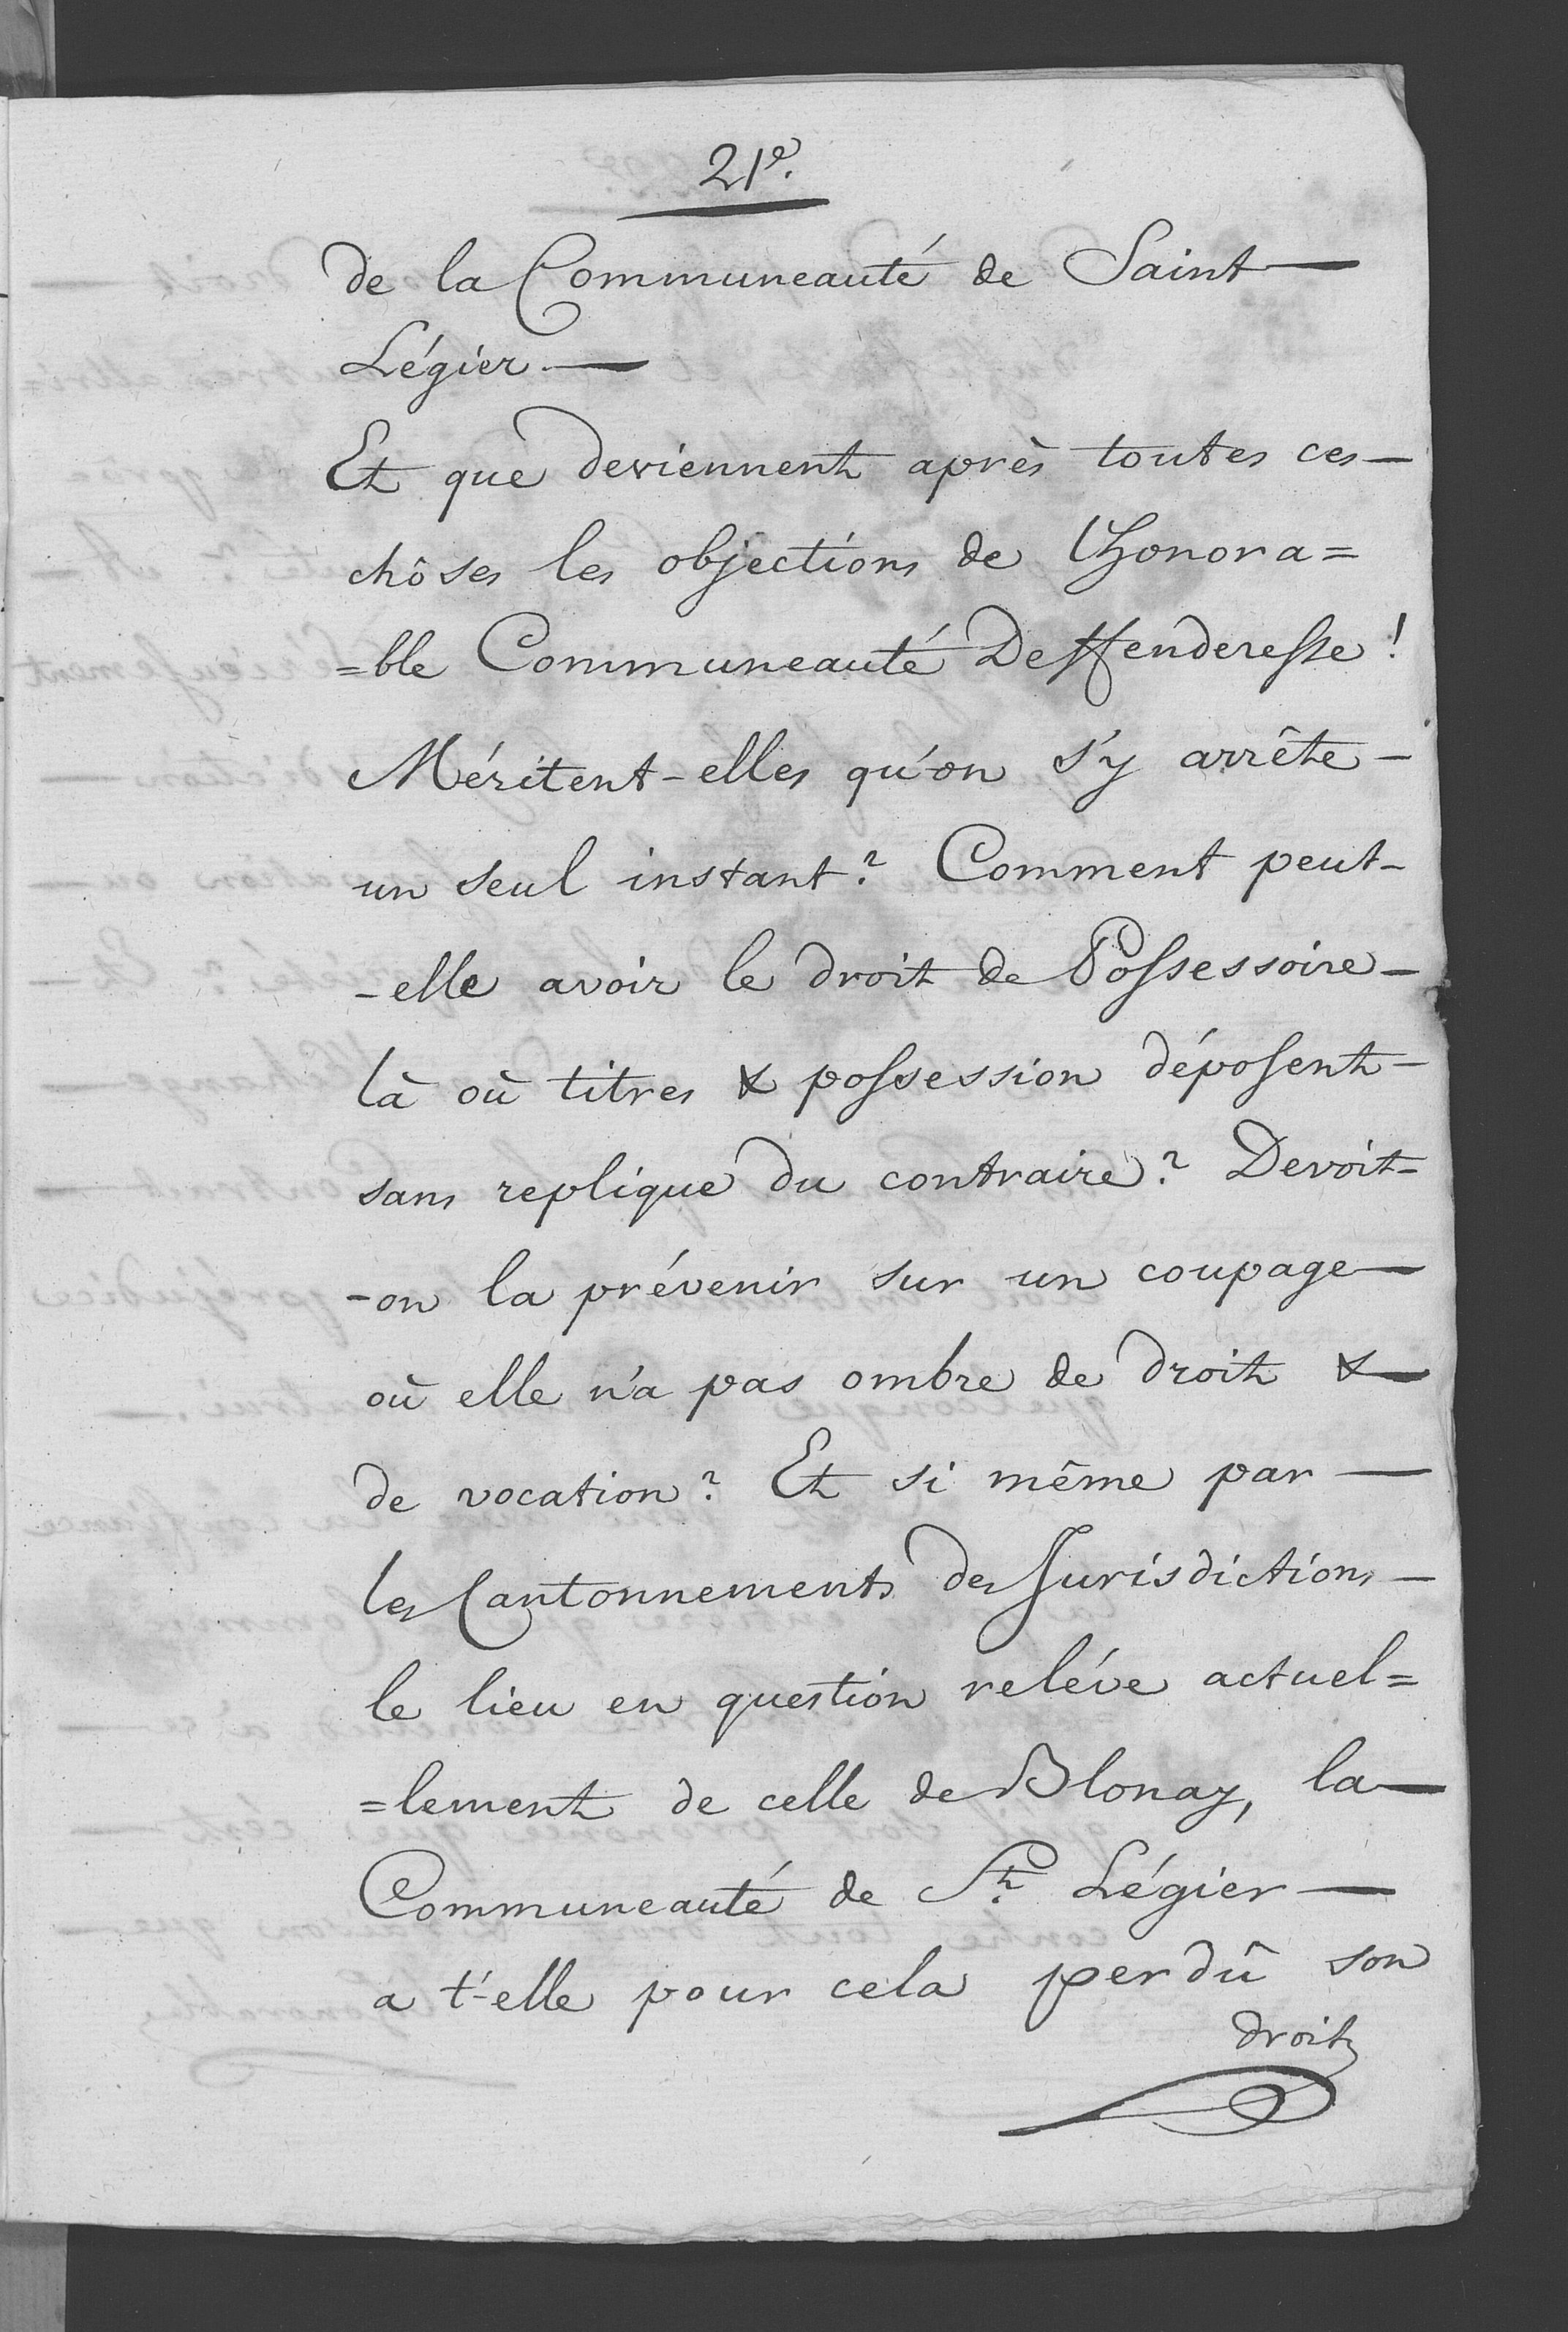 21e.
de la Communeauté de Saint —
Légier. —
Et que deviennent après toutes ces —
chôses les objections de l'honora=
=ble Communeauté Deffenderesse!
Méritent-elles qu'on s'y arrête —
un seul instant? Comment peut-
-elle avoir le droit de Possessoire —
là où titres & possession déposent —
sans replique du contraire? Devoit-
-on la prévenir sur un coupage —
où elle n'a pas ombre de droit & —
de vocation? Et si même par —
les Cantonnements des Jurisdictions —
le lieu en question reléve actuel=
=lement de celle de Blonay, la —
Communeauté de St. Légier —
a t'-elle pour cela perdû son
droit